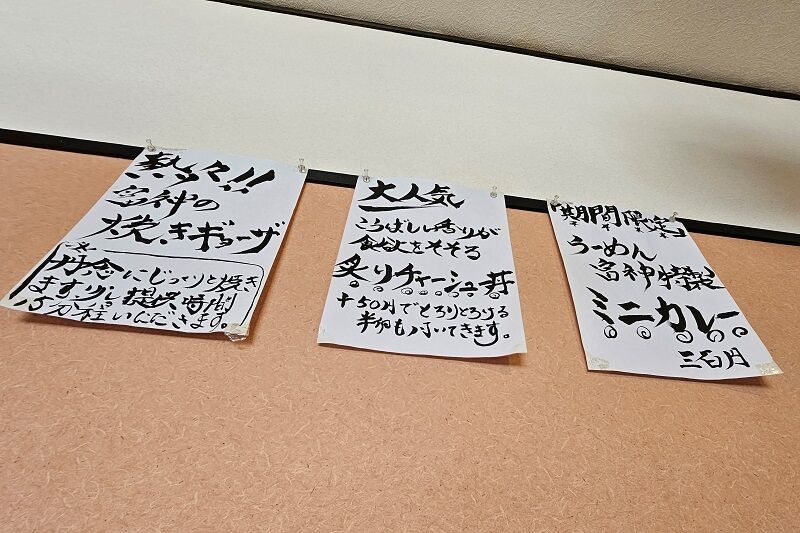 熱々!!
富神の
焼きギョーザ
一枚一枚
丹念にじっくりと焼き
ます少し提供時間
15分程いただきます。
大人気
こうばしい香りが
食欲をそそる
炙りチャーシュー丼
+50円でとろりとろける
半卵も付いてきます。
期間限定
らーめん
富神特製
ミニカレー
三百円